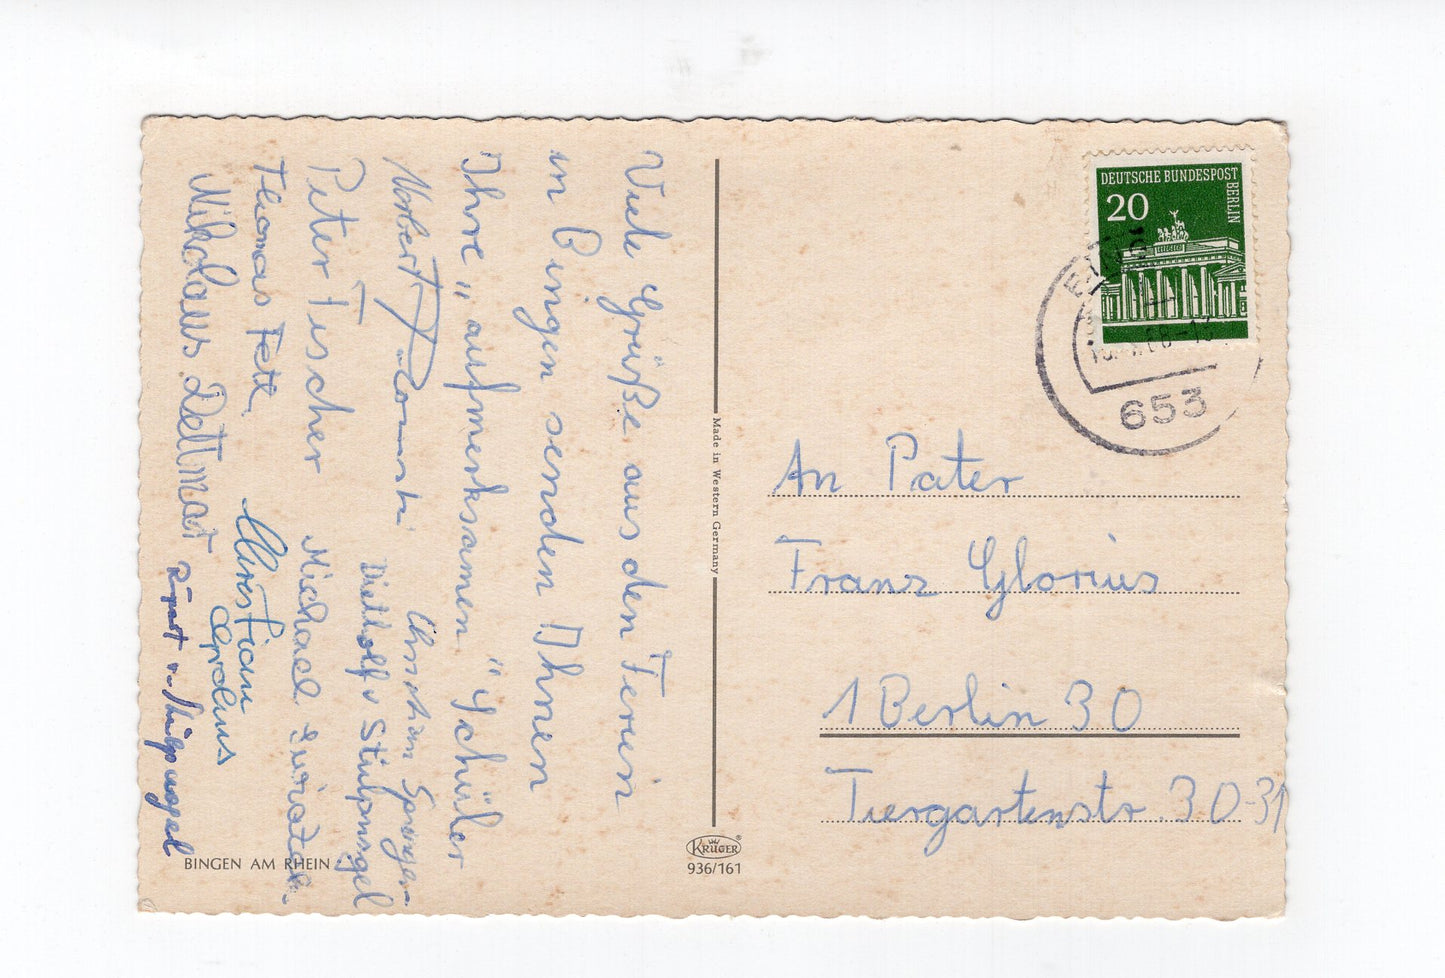 Viele Grüße aus den Ferien
in Bingen senden Ihnen
Ihre "aufmerksamen" Schüler
Norbert
Christian Springer
Peter Tischer
Dietholf v Stülpnagel
Thomas Fett
Michael
Nikolaus Dettmar
Christian
Rupert v. Stülpnagel
BINGEN AM RHEIN
Made in Western Germany
KRÜGER®
936/161
DEUTSCHE BUNDESPOST
BERLIN
20
653
An Pater
Franz Glorius
1 Berlin 30
Tiergartenstr. 30-31